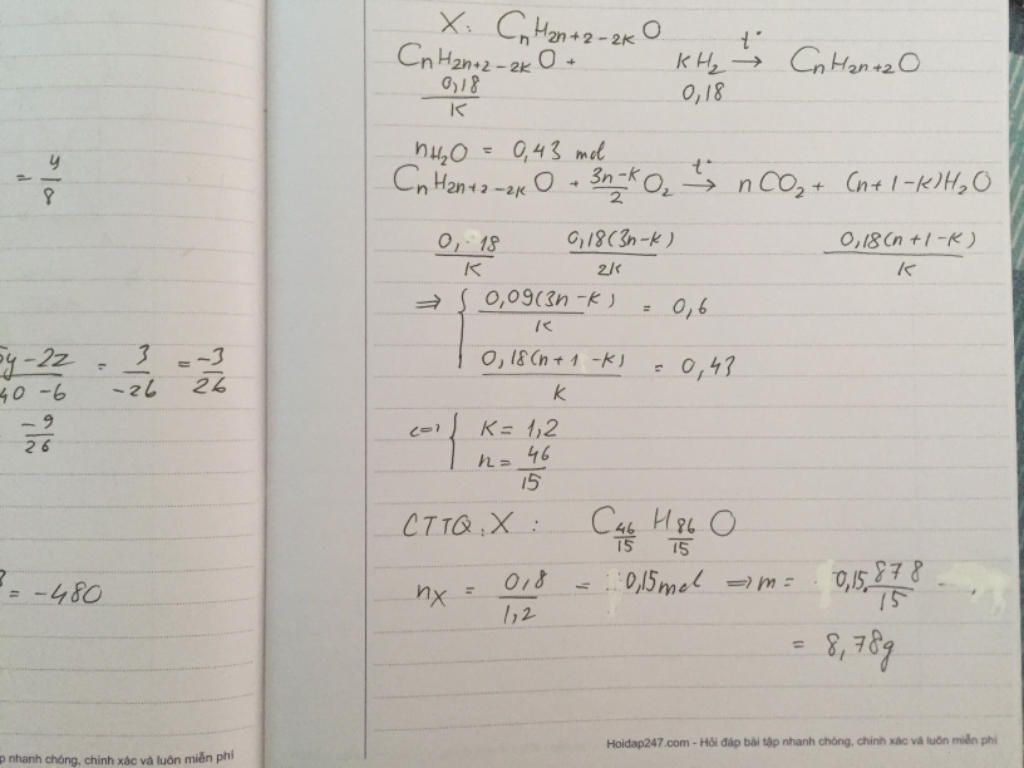 = 4/8
5y-2z/40-6 = 3/-26 = -3/26
-9/26
= -480
p nhanh chóng, chính xác và luôn miễn phí
X: CnH2n+2-2kO
CnH2n+2-2kO + kH2 t° → CnH2n+2O
0,18/k 0,18
nH2O = 0,43 mol
CnH2n+2-2kO + 3n-k/2 O2 t° → nCO2 + (n+1-k)H2O
0,18/k 0,18(3n-k)/2k 0,18(n+1-k)/k
⇒ { 0,09(3n-k)/k = 0,6
0,18(n+1-k)/k = 0,43
<=> { k = 1,2
n = 46/15
CTTQ.X: C46/15 H86/15 O
nX = 0,8/1,2 = 0,15 mol ⇒ m = 0,15.878/15
= 8,78g
Hoidap247.com - Hỏi đáp bài tập nhanh chóng, chính xác và luôn miễn phí